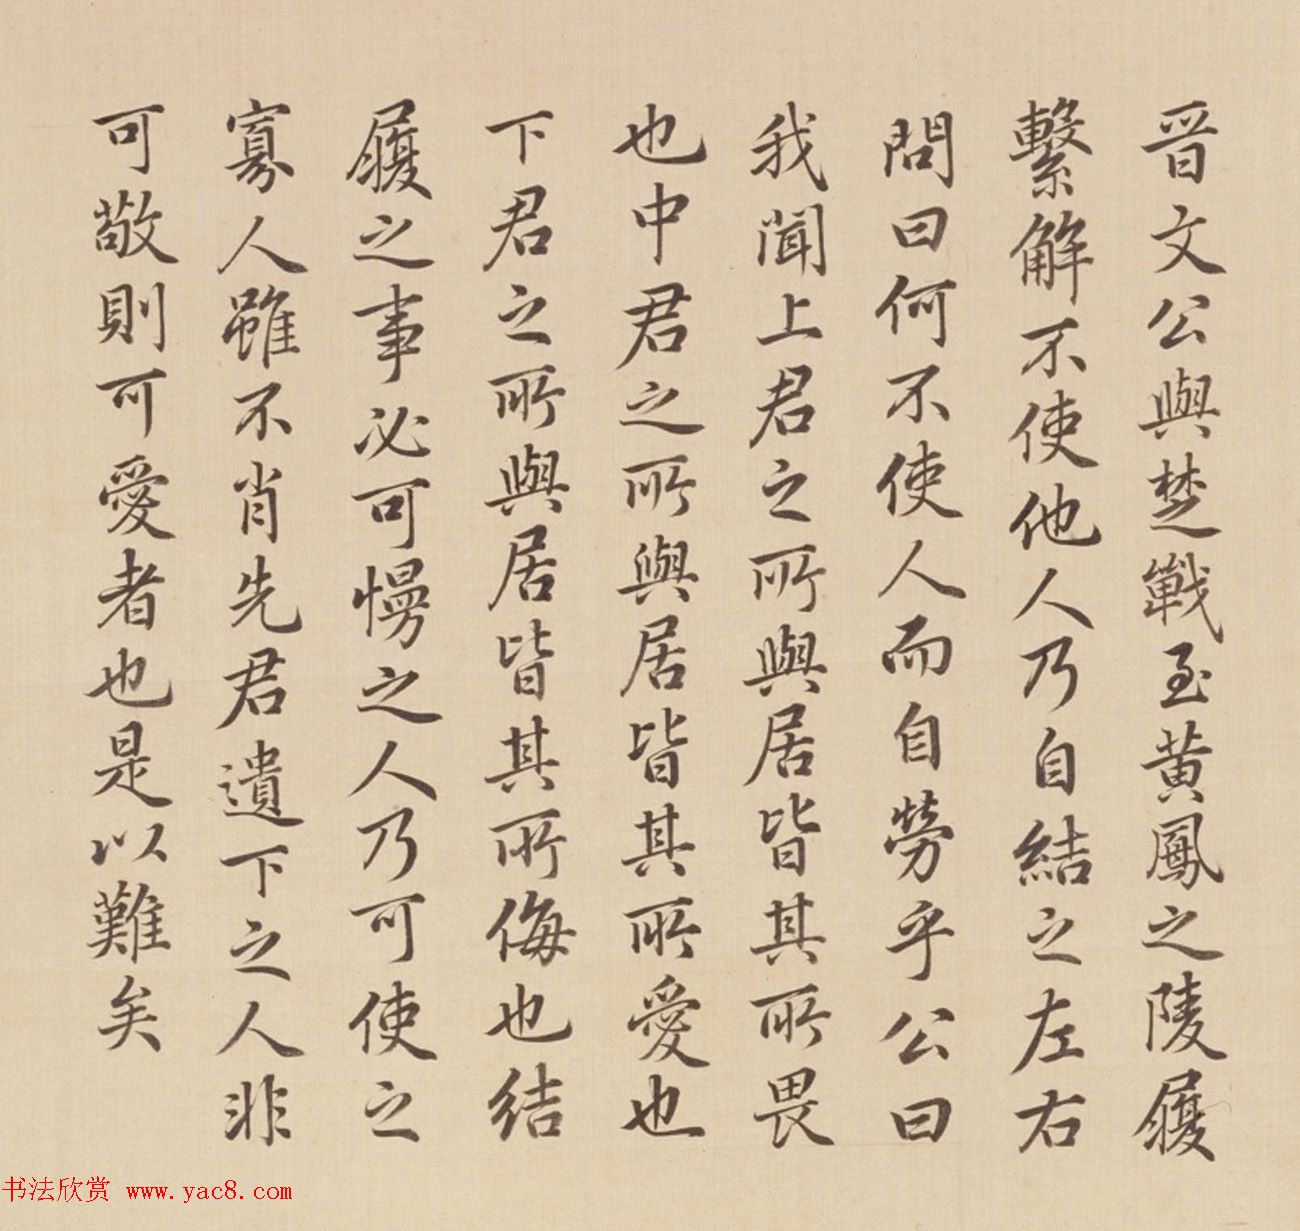 晉文公與楚戰至黃鳳之陵履
繫解不使他人乃自結之左右
問曰何不使人而自勞乎公曰
我聞上君之所與居皆其所畏
也中君之所與居皆其所愛也
下君之所與居皆其所侮也结
履之事必可慢之人乃可使之
寡人雖不肖先君遺下之人非
可敬則可愛者也是以難矣
书法欣赏 www.yac8.com